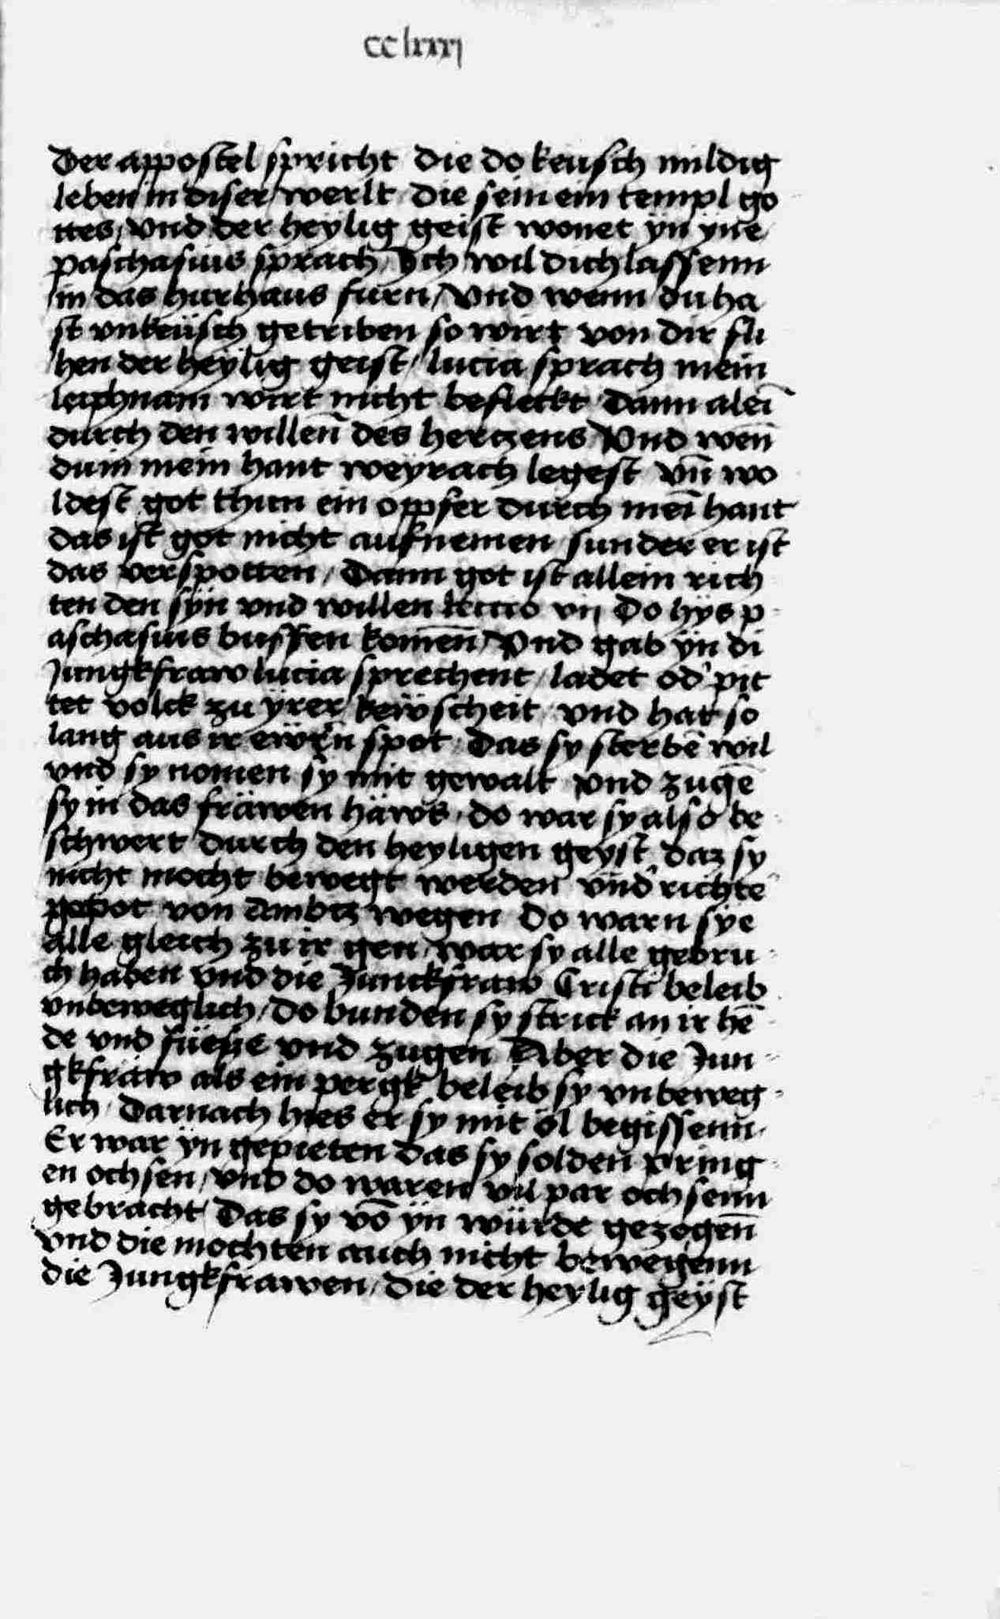 cclxxxj
Der appostel spricht die do keusch mildig
leben in diser werlt die sein ein templ go
ttes, vnd der heylig geist wonet yn yne
paschasius sprach Ich wil dich lassenn
in das hurhaus furn, Vnd wenn du ha
st vnkeüsch getriben so wirt von dir fli
hen der heylig geist, lucia sprach mein
leiphnam wirt nicht befleckt dann alei̅
durch den willen̅ des hertzens Vnd wen̅
du in mein hant weyrach legest vn̅ wo
ldest got thun ein opfer durch mei̅ hant
das ist got nicht aufnemen sunder er ist
das verspotten, Dann got ist allein rich
ten den syn vnd willen lectio vij Do hys p
aschasius buffen komen̅, Vnd gab yn di
Jungkfraw lucia sprechent, ladet od' pit
tet volck zu yrer kewscheit, vnd hat so
lang aus ir ewrn̅ spot, Das sy sterbe̅ wil
vnd sy nomen sy mit gewalt vnd zuge̅
sy in das fräwen häws, do war sy also be
schwert durch den heyligen geyst daz sy
nicht mocht bewegt werden vnd richte
gepot von ambtz wegen Do warn sye
alle gleich zu ir gen, war sy alle gebru
ch haben vnd die Junckfraw Cristi beleib
vnbeweglich, do bunden sy strick an ir he̅
de vnd füesse vnd zugen Aber die Jun
gkfraw als ein pergk beleib sy vnbeweg
lich, Darnach hies er sy mit öl begissenn
Er war yn gepieten das sy solden pring
en ochsen, vnd do waren vil par ochsenn
gebracht Das sy vo̅ yn würde gezogen̅
vnd die mochten auch nicht bewegenn
die Jungkfrawen, die der heylig geyst